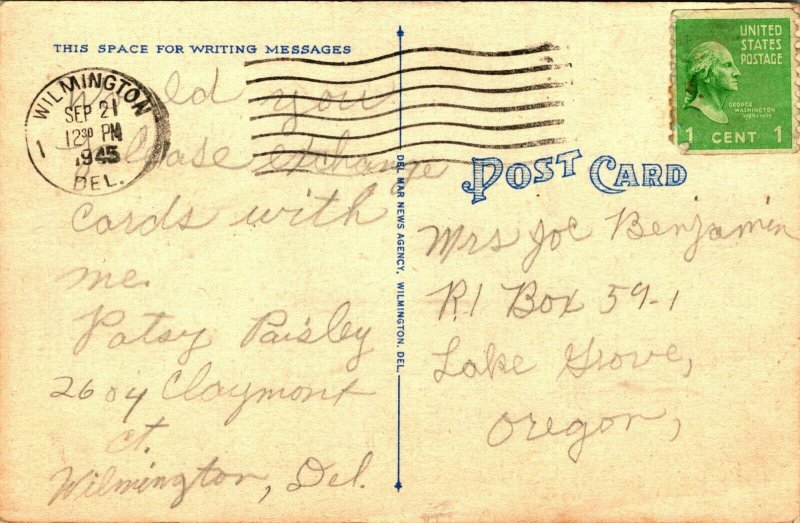 THIS SPACE FOR WRITING MESSAGES
WILMINGTON
SEP 21
12 30 PM
1945
DEL.
1
Would you
please exchange
cards with
me.
Patsy Paisley
2604 Claymont
ct.
Wilmington, Del.
DEL MAR NEWS AGENCY, WILMINGTON, DEL.
UNITED
STATES
POSTAGE
GEORGE
WASHINGTON
1789-1797
1 CENT 1
POST CARD
Mrs Joe Benjamin
R.1 Box 59-1
Lake Grove,
Oregon,